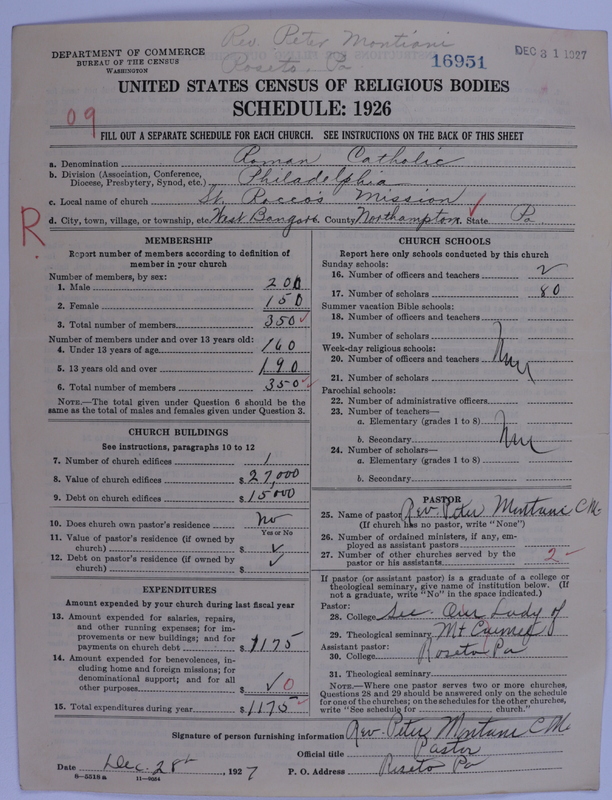 Rev. Peter Montiani
Roseto, Pa
DEPARTMENT OF COMMERCE
BUREAU OF THE CENSUS
WASHINGTON
16951
DEC 31 1927
UNITED STATES CENSUS OF RELIGIOUS BODIES
SCHEDULE: 1926
09
FILL OUT A SEPARATE SCHEDULE FOR EACH CHURCH. SEE INSTRUCTIONS ON THE BACK OF THIS SHEET
a. Denomination Roman Catholic
b. Division (Association, Conference, Diocese, Presbytery, Synod, etc.) Philadelphia
c. Local name of church St. Rocco's Mission
d. City, town, village, or township, etc. West Bangor. County Northampton. State Pa.
R.
MEMBERSHIP
Report number of members according to definition of
member in your church
Number of members, by sex:
1. Male 200
2. Female 150
3. Total number of members 350
Number of members under and over 13 years old:
4. Under 13 years of age 160
5. 13 years old and over 190
6. Total number of members 350
NOTE.—The total given under Question 6 should be
same as the total of males and females given under Question 3.
CHURCH BUILDINGS
See instructions, paragraphs 10 to 12
7. Number of church edifices 1
8. Value of church edifices $27,000
9. Debt on church edifices $15000
10. Does church own pastor's residence No
Yes or No
11. Value of pastor's residence (if owned by
church) $
12. Debt on pastor's residence (if owned by
church) $
EXPENDITURES
Amount expended by your church during last fiscal year
13. Amount expended for salaries, repairs,
and other running expenses; for im-
provements or new buildings; and for
payments on church debt $1175
14. Amount expended for benevolences, in-
cluding home and foreign missions; for
denominational support; and for all
other purposes $ 0
15. Total expenditures during year $1175
CHURCH SCHOOLS
Report here only schools conducted by this church
Sunday schools:
16. Number of officers and teachers 2
17. Number of scholars 80
Summer vacation Bible schools:
18. Number of officers and teachers
19. Number of scholars
Week-day religious schools:
20. Number of officers and teachers
21. Number of scholars
Parochial schools:
22. Number of administrative officers
23. Number of teachers—
a. Elementary (grades 1 to 8)
b. Secondary
24. Number of scholars—
a. Elementary (grades 1 to 8)
b. Secondary
PASTOR
25. Name of pastor Rev. Peter Montiani C.M.
(If church has no pastor, write "None")
26. Number of ordained ministers, if any, em-
ployed as assistant pastors
27. Number of other churches served by the
pastor or his assistants 2
If pastor (or assistant pastor) is a graduate of a college or
theological seminary, give name of institution below. (If
not a graduate, write "No" in the space indicated.)
Pastor:
28. College See. Our Lady of
29. Theological seminary Mt Carmel
Assistant pastor:
30. College Roseto Pa
31. Theological seminary
NOTE.—Where one pastor serves two or more churches,
Questions 28 and 29 should be answered only on the schedule
for one of the churches; on the schedules for the other churches,
write "See schedule for church."
Signature of person furnishing information Rev. Peter Montiani C.M.
Official title Pastor
Date Dec. 28th, 1927 P. O. Address Roseto Pa
8-5518a 11-9054